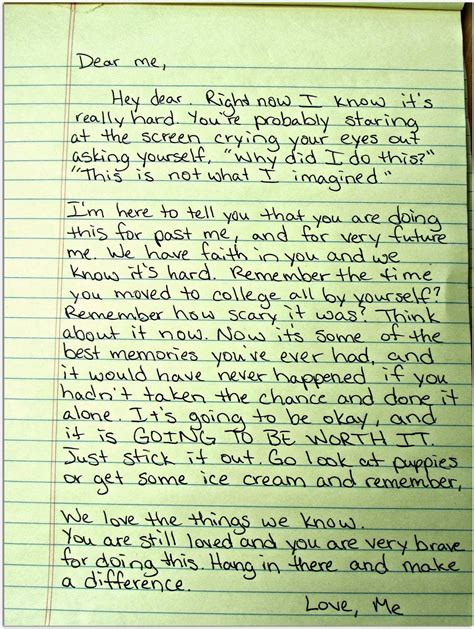 Dear me,
Hey dear. Right now I know it's
really hard. You're probably staring
at the screen crying your eyes out
asking yourself, "Why did I do this?"
"This is not what I imagined."
I'm here to tell you that you are doing
this for past me, and for very future
me. We have faith in you and we
know it's hard. Remember the time
you moved to college all by yourself?
Remember how scary it was? Think
about it now. Now it's some of the
best memories you've ever had, and
it would have never happened if you
hadn't taken the chance and done it
alone. It's going to be okay, and
it is GOING TO BE WORTH IT.
Just stick it out. Go look at puppies
or get some ice cream and remember,
We love the things we know.
You are still loved and you are very brave
for doing this. Hang in there and make
a difference.
Love, Me